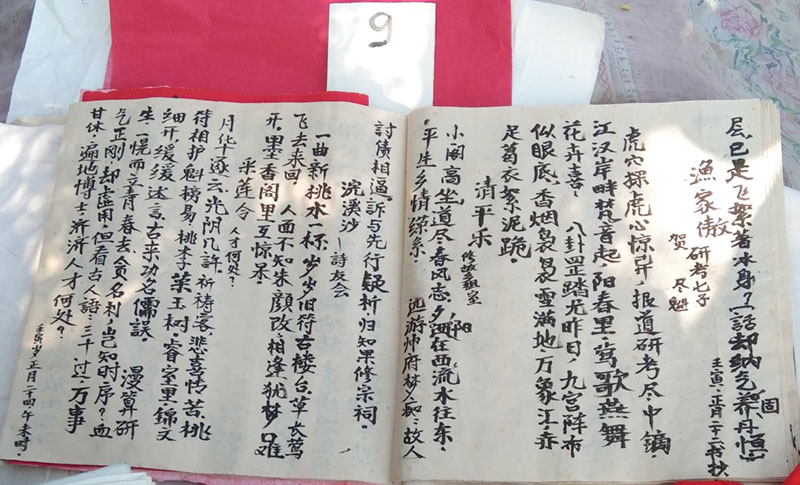 9
尽已是飞絮着冰身了話却纳气养丹恒固
漁家傲 研考七子
贺 尽魁
壬寅正月二十二书抄
虎穴探虎心惊异，报道研考尽中镝，
江汉岸畔梵音起，阳春里，莺歌燕舞
花卉喜． 八卦罡踏尤昨日，九宫阵布
似眼底，香烟袅袅雪满地，万象江赤
足葛衣絮泥跪。
清平乐
小阁高坐道尽春风志，夕阳在西流水往东，
平生乡情缘系． 远游帅府梦人，故人
討債相逼，訴与先行疑析归知果修宗祠。
浣溪沙 — 詩友会
一曲新桃水一杯，岁岁旧符古楼台，草长莺
飞去来回， 人面不知朱顔改，相逢犹梦
开，墨香阁里互惊呆．
采莲令
人才何处？
月华逐云光阴几许，祈祷衰，悲喜情苦，桃
符相护魁榜易，桃李茱玉树，睿室里，锦文
细开，缓缓述言，古来功名儒误． 漫算研
生，一慌而立青春去，贪名利，岂知时序？血
气正刚，却虚用，但看古人語，三千过，万事
甘休，遍地博士，济济人才何处？
壬寅岁正月二十四午末时．